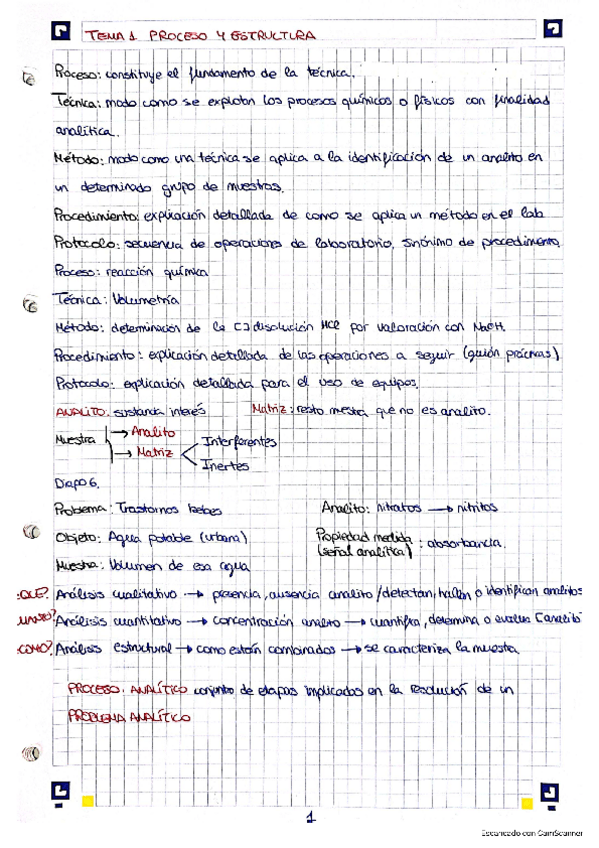 TEMA 1 PROCESO Y ESTRUCTURA
Proceso: constituye el fundamento de la técnica.
Técnica: modo como se explotan los procesos químicos o físicos con finalidad
analítica.
Método: modo como una técnica se aplica a la identificación de un analito en
un determinado grupo de muestras.
Procedimiento: explicación detallada de como se aplica un método en el lab
Protocolo: secuencia de operaciones de laboratorio, sinónimo de procedimento.
Proceso: reacción química
Técnica: Volumetría
Método: determinación de la [ ] disolución HCl por valoración con NaOH.
Procedimiento: explicación detallada de las operaciones a seguir (guión prácticas)
Protocolo: explicación detallada para el uso de equipos.
ANALITO: sustancia interés Matriz: resto mestra que no es analito.
Muestra → Analito
→ Matriz Interferentes
Inertes
Diapo 6.
Problema: Trastornos bebes Analito: nitratos → nitritos
Objeto: Agua potable (urbana) Propiedad medida (señal analítica): absorbancia.
Muestra: Volumen de esa agua
¿QUÉ? Análisis cualitativo → presencia, ausencia analito / detectan, hallan o identifican analitos
Análisis cuantitativo → concentración analito → cuantifica, determina o evalua [analito]
¿COMO? Análisis estructural → como están combinados → se caracteriza la muestra
PROCESO ANALÍTICO conjunto de etapas implicadas en la resolución de un
PROBLEMA ANALÍTICO
1
Escaneado con CamScanner